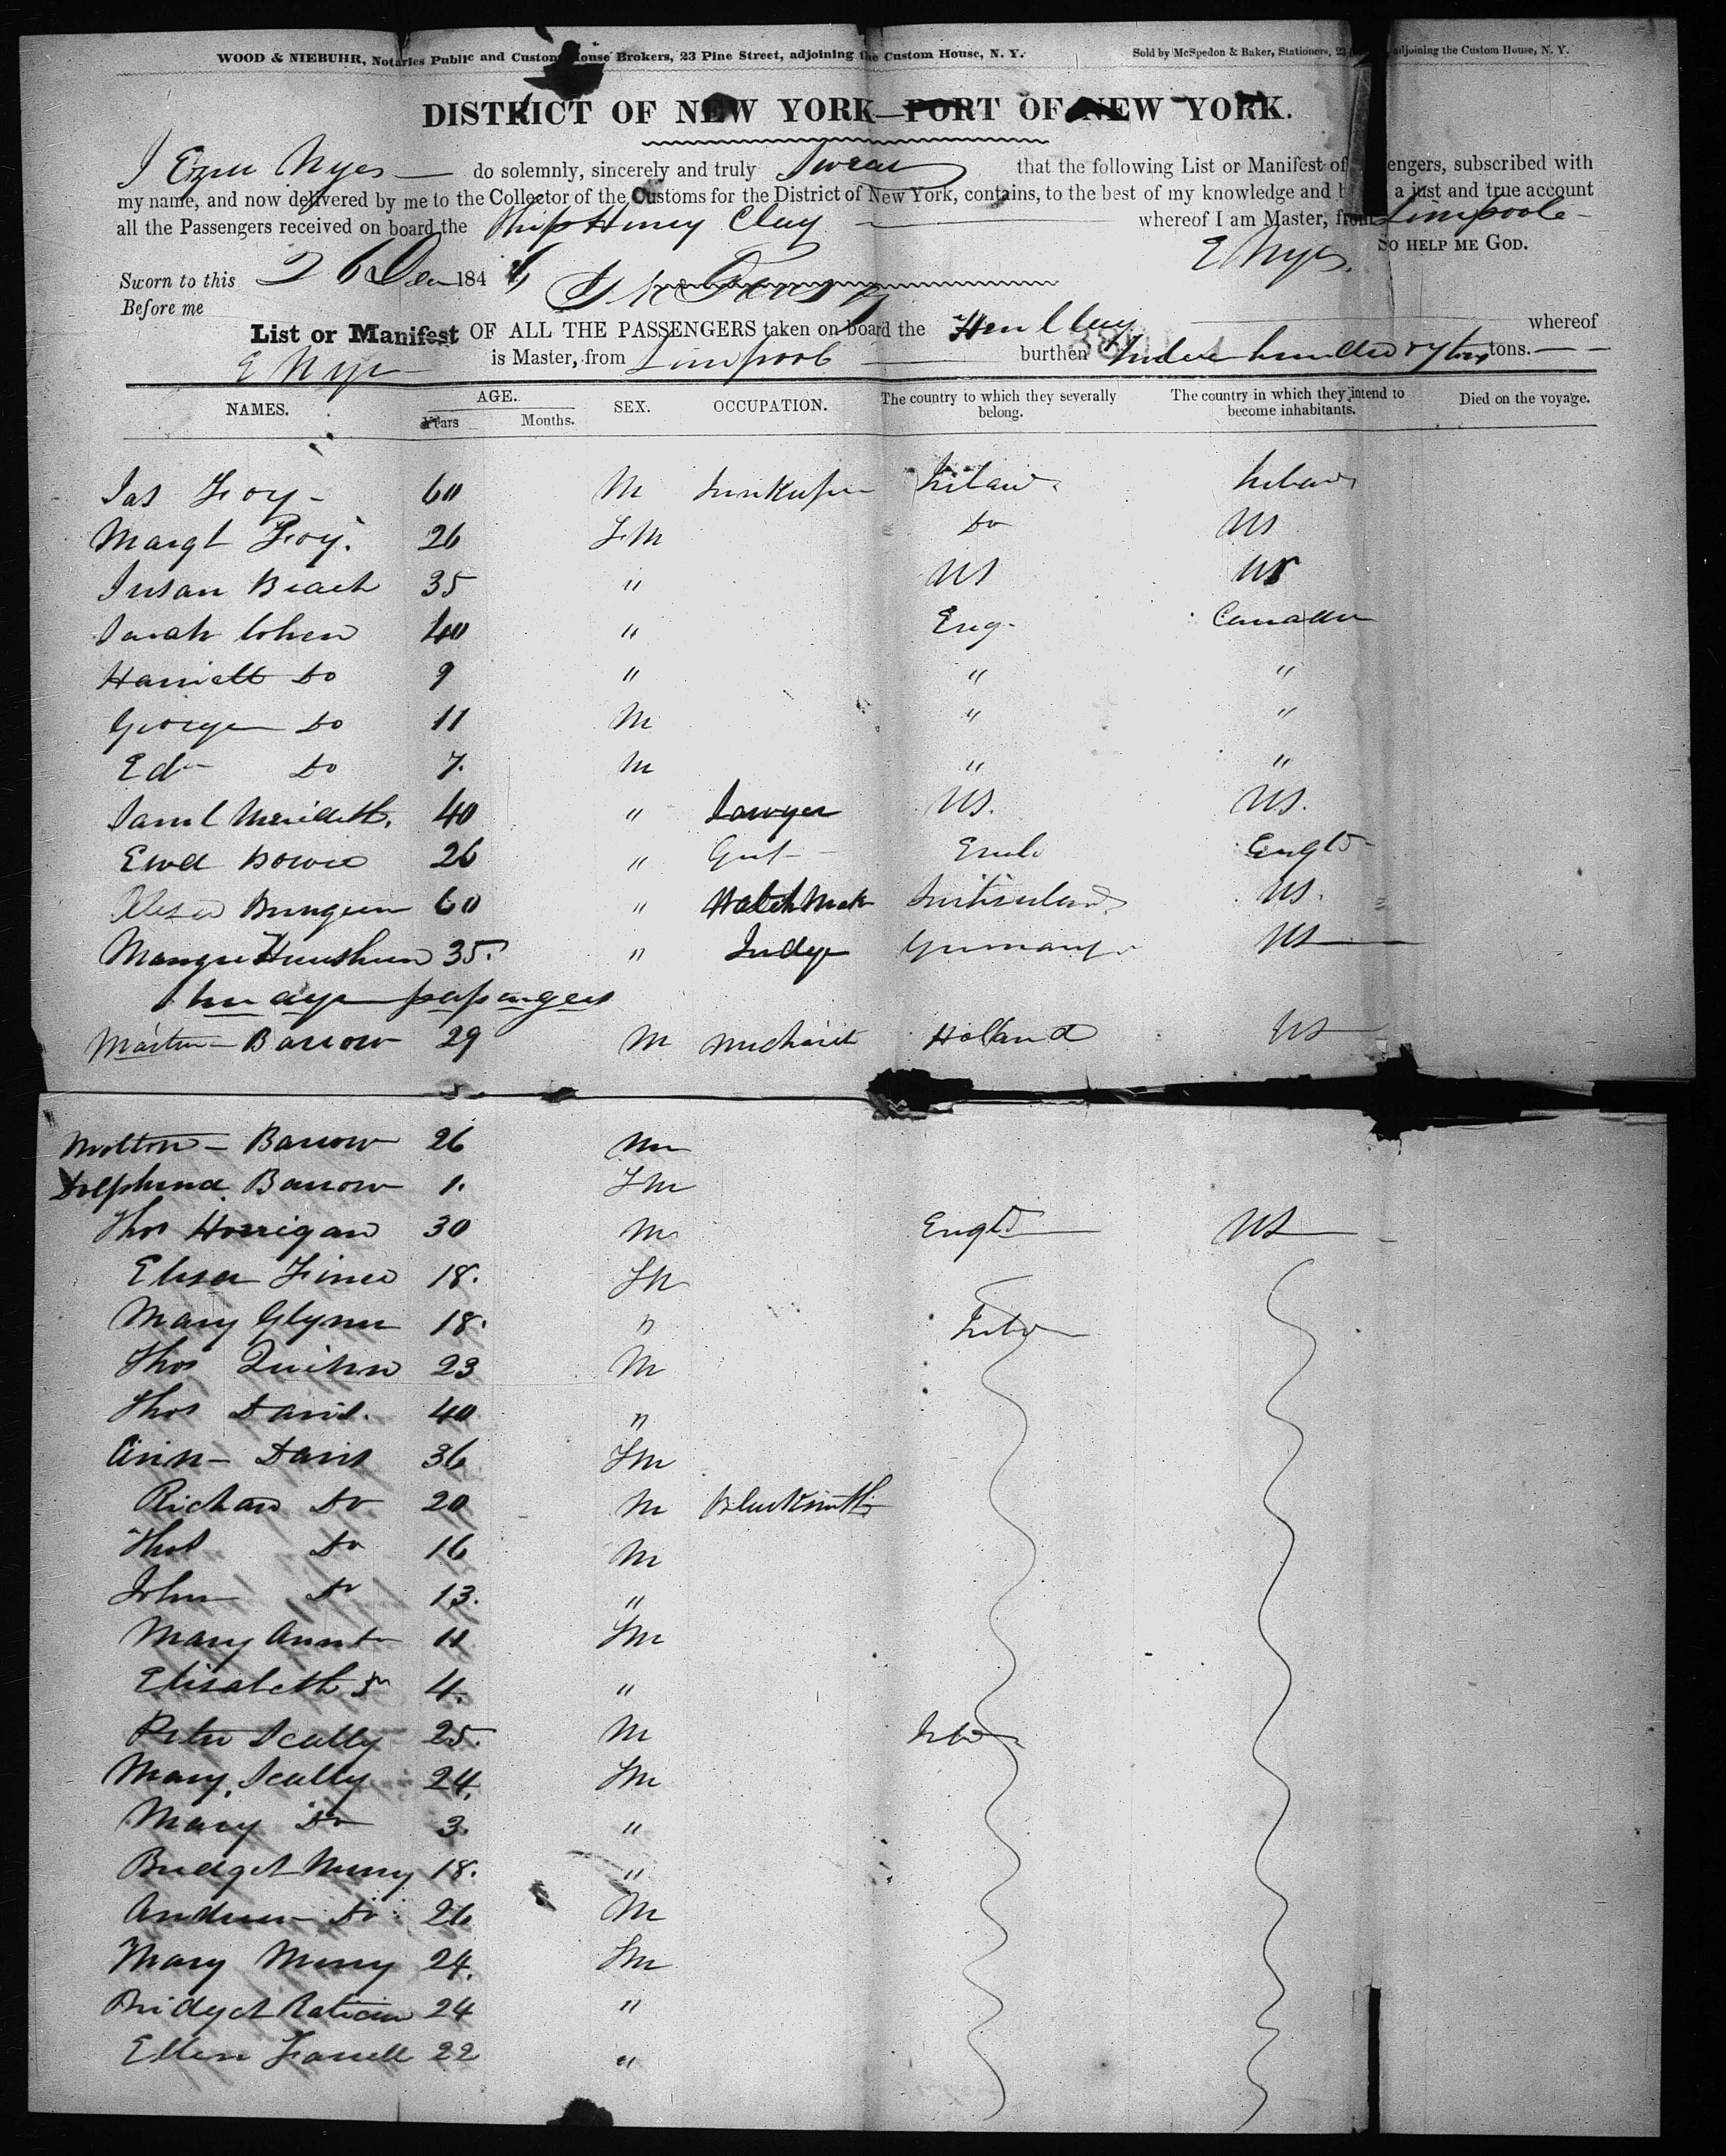 WOOD & NIEBUHR, Notaries Public and Custom House Brokers, 23 Pine Street, adjoining the Custom House, N. Y.
Sold by McSpedon & Baker, Stationers, 23 adjoining the Custom House, N. Y.
DISTRICT OF NEW YORK—PORT OF NEW YORK.
I Ezra Nyes do solemnly, sincerely and truly Swear that the following List or Manifest of engers, subscribed with
my name, and now delivered by me to the Collector of the Customs for the District of New York, contains, to the best of my knowledge and b a just and true account
all the Passengers received on board the Ship Henry Clay whereof I am Master, from Liverpool
SO HELP ME GOD.
E Nyes.
Sworn to this 26 Dec 1846
Before me
List or Manifest OF ALL THE PASSENGERS taken on board the Hen Clay whereof
E Nye is Master, from Liverpool burthen hundred tons.
NAMES. AGE. Years Months. SEX. OCCUPATION. The country to which they severally belong. The country in which they intend to become inhabitants. Died on the voyage.
Jas Foy 60 M Innkeeper Ireland Ireland
Margt Foy. 26 FM Do US
Susan Beach 35 " US US
Sarah Cohen 40 " Eng. Canada
Harriett Do 9 " " "
George Do 11 M " "
Edw Do 7. M " "
Saml Merideth. 40 " Lawyer US. US.
Ewd Bowie 26 " Gent Engld
60 " Watch Mak US.
35. " Judge Germany US
passengers
Barrow 29 M Mechanic Holland US
Barrow 26
Delphina Barrow 1. FM
Thos Horrigan 30 M Engld US
Eliza 18. FM
Mary Glynn 18. " Irelan
Thos Quinn 23 M
Thos David. 40 "
Ann Davis 36 FM
Richard Do 20 M Blacksmith
Thos Do 16 M
John Do 13. "
Mary Ann Do 11 FM
Elisabeth Do 4. "
Peter Scally 25. M Irelan
Mary Scally 24. FM
Mary Do 3. "
Bridget Murry 18. "
Andrew Do 26 M
Mary Murry 24. FM
Bridget 24 "
Ellen Farrell 22 "